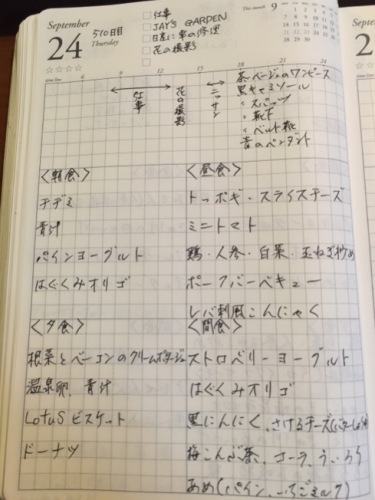 September
24
Thursday
510日目
仕事
JAY'S GARDEN
日産に車の修理
花の撮影
This month 9
仕事
花の撮影
ニッサン
茶ベージュのワンピース
黒キャミソール
〃 スパッツ
〃 靴下
〃 ベルト靴
青のペンダント
<朝食>
チヂミ
青汁
パインヨーグルト
はぐくみオリゴ
<昼食>
トッポギ・スライスチーズ
ミニトマト
鶏・人参・白菜・玉ねぎ炒め
ポークバーベキュー
レバ刺風こんにゃく
<夕食>
根菜とベーコンのクリームポタージュ
温泉卵、青汁
Lotus ビスケット
ドーナツ
<間食>
ストロベリーヨーグルト
はぐくみオリゴ
黒にんにく、さけるチーズ(バターしょうゆ)
梅こんぶ茶、コーラ、ういろう
あめ(パイン、